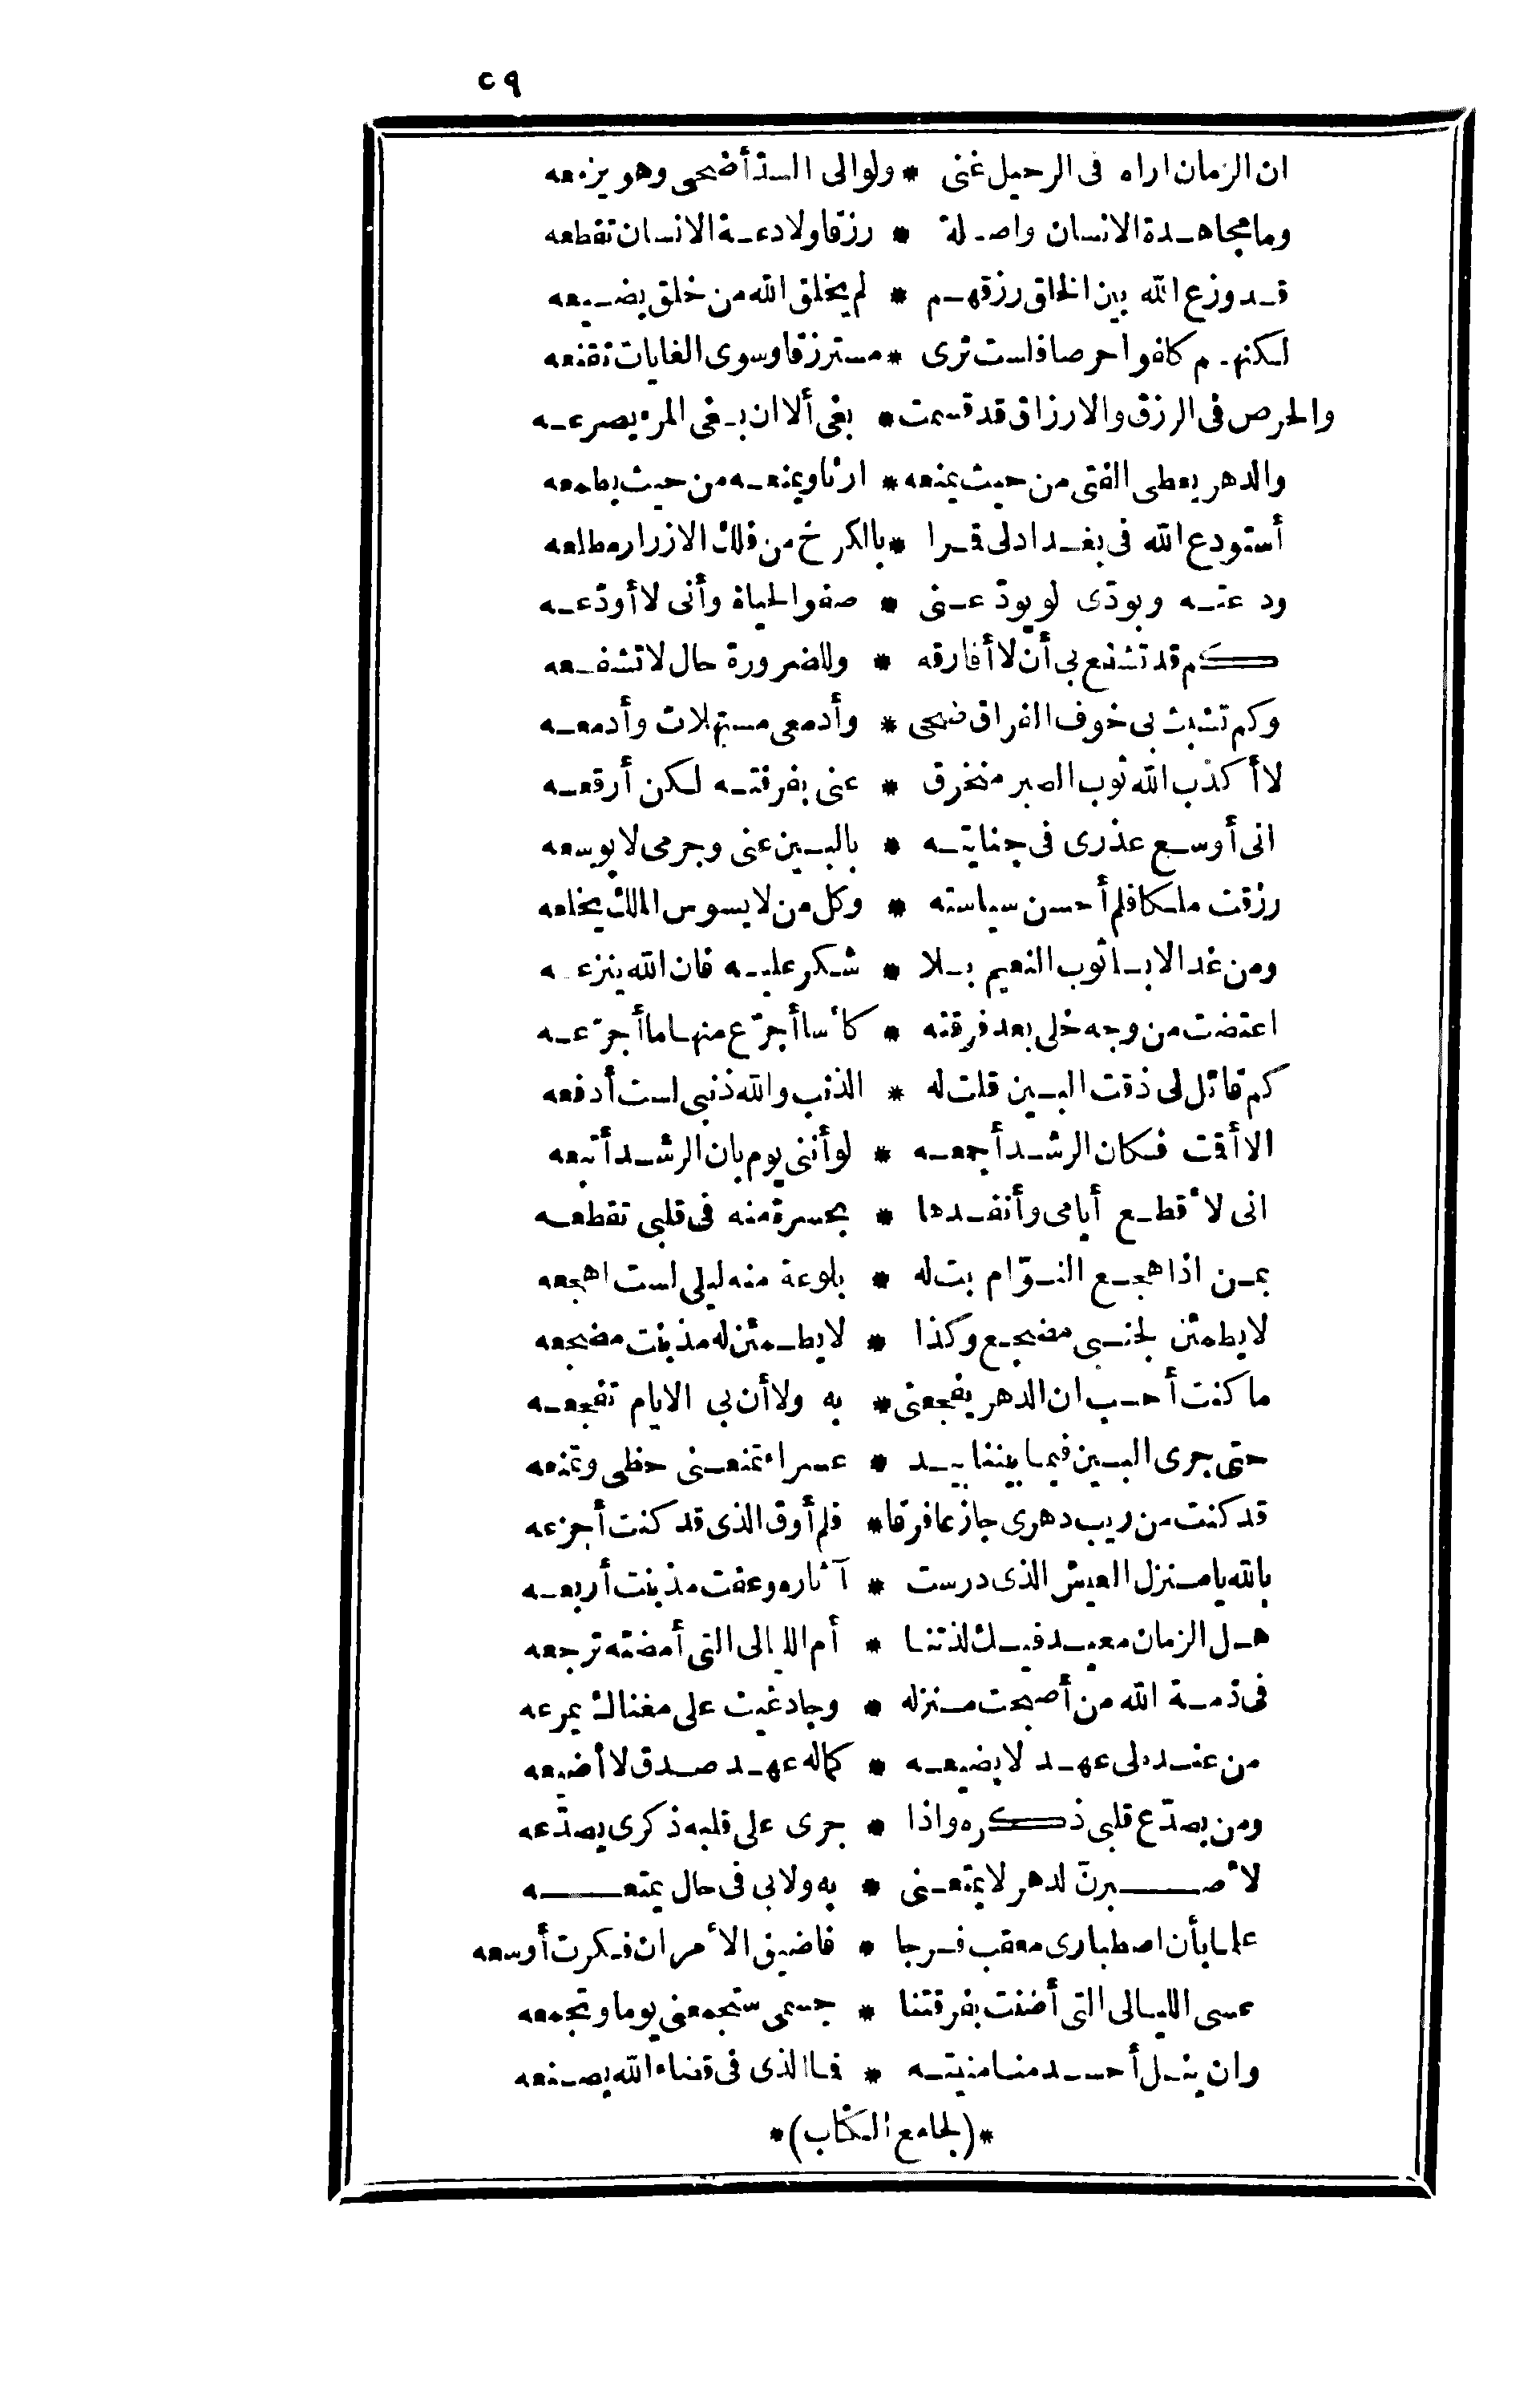 ٢٩
ان الزمان اراه فى الرحيل غنى * ولو الى السد أضحى وهو يزمعه
وما مجاهدة الانسان واصلة * رزقا ولا دعة الانسان تقطعه
قد وزع الله بين الخلق رزقهم * لم يخلق الله من خلق يضيعه
لكنهم كلفوا حرصا فلست ترى * مسترزقا وسوى الغايات تقنعه
والحرص فى الرزق والارزاق قد قسمت * بغى ألا ان بغى المرء يصرعه
والدهر يعطى الفتى من حيث يمنعه * ارثا ويمنعه من حيث يطمعه
أستودع الله فى بغداد لى قمرا * بالكرخ من فلك الازرار مطلعه
ودعته وبودّى لو يودّعنى * صفو الحياة وأنى لا أودّعه
كم قد تشفع بى أن لا أفارقه * وللضرورة حال لا تشفعه
وكم تشبث بى خوف الفراق ضحى * وأدمعى مستهلات وأدمعه
لا أكذب الله ثوب الصبر منخرق * عنى بفرقته لكن أرقعه
انى أوسع عذرى فى جنايته * بالبين عنى وجرمى لا يوسعه
رزقت ملكا فلم أحسن سياسته * وكل من لا يسوس الملك يخلعه
ومن غدا لابسا ثوب النعيم بلا * شكر عليه فان الله ينزعه
اعتضت من وجه خلى بعد فرقته * كأسا أجرّع منها ما أجرّعه
كم قائل لى ذقت البين قلت له * الذنب والله ذنبى لست أدفعه
الا أقمت فكان الرشد أجمعه * لو أننى يوم بان الرشد أتبعه
انى لأقطع أيامى وأنفدها * بحسرة منه فى قلبى تقطعه
بمن اذا هجع النوّام بت له * بلوعة منه ليلى لست اهجعه
لا يطمئن لجنبى مضجع وكذا * لا يطمئن له مذ بنت مضجعه
ما كنت أحسب ان الدهر يفجعنى * به ولا أن بى الايام تفجعه
حتى جرى البين فيما بيننا بيد * عسراء تمنعنى حظى وتمنعه
قد كنت من ريب دهرى جازعا فرقا * فلم أوق الذى قد كنت أجزعه
بالله يا منزل العيش الذى درست * آثاره وعفت مذ بنت أربعه
هل الزمان معيد فيك لذتنا * أم الليالى التى أمضته ترجعه
فى ذمة الله من أصبحت منزله * وجاد غيث على مغناك يمرعه
من عنده لى عهد لا يضيعه * كما له عهد صدق لا أضيعه
ومن يصدّع قلبى ذكره واذا * جرى على قلبه ذكرى يصدّعه
لأصبرنّ لدهر لا يمتعنى * به ولا بى فى حال يمتعه
علما بأن اصطبارى معقب فرجا * فاضيق الأمر ان فكرت أوسعه
عسى الليالى التى أضنت بفرقتنا * جسمى ستجمعنى يوما وتجمعه
وان ينل أحد منا منيته * فما الذى فى قضاء الله يصنعه
* (لجامع الكتاب) *